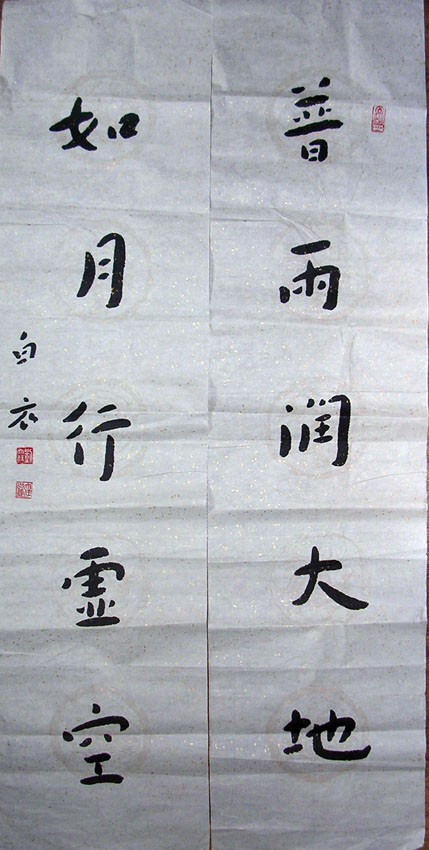 普雨润大地
如月行霊空
白衣